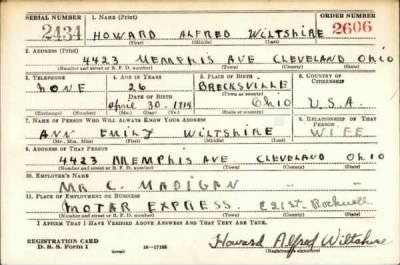 SERIAL NUMBER 1. NAME (Print) ORDER NUMBER
2434 HOWARD ALFRED WILTSHIRE 2606
(First) (Middle) (Last)
2. ADDRESS (Print)
4423 MEMPHIS AVE CLEVELAND OHIO
(Number and street or R. F. D. number) (Town) (County) (State)
3. TELEPHONE 4. AGE IN YEARS 5. PLACE OF BIRTH 6. COUNTRY OF CITIZENSHIP
NONE 26 BRECKSVILLE
DATE OF BIRTH (Town or county)
April 30. 1914 OHIO U.S.A.
(Exchange) (Number) (Mo.) (Day) (Yr.) (State or country)
7. NAME OF PERSON WHO WILL ALWAYS KNOW YOUR ADDRESS 8. RELATIONSHIP OF THAT PERSON
ANN EMILY WILTSHIRE WIFE
(Mr., Mrs., Miss) (First) (Middle) (Last)
9. ADDRESS OF THAT PERSON
4423 MEMPHIS AVE CLEVELAND OHIO
(Number and street or R. F. D. number) (Town) (County) (State)
10. EMPLOYER'S NAME
MR C. MADIGAN
11. PLACE OF EMPLOYMENT OR BUSINESS
MOTOR EXPRESS. E 21st. Rockwell
(Number and street or R. F. D. number) (Town) (County) (State)
I AFFIRM THAT I HAVE VERIFIED ABOVE ANSWERS AND THAT THEY ARE TRUE.
REGISTRATION CARD Howard Alfred Wiltshire
D. S. S. Form 1 (over) 16—17105 (Registrant's signature)